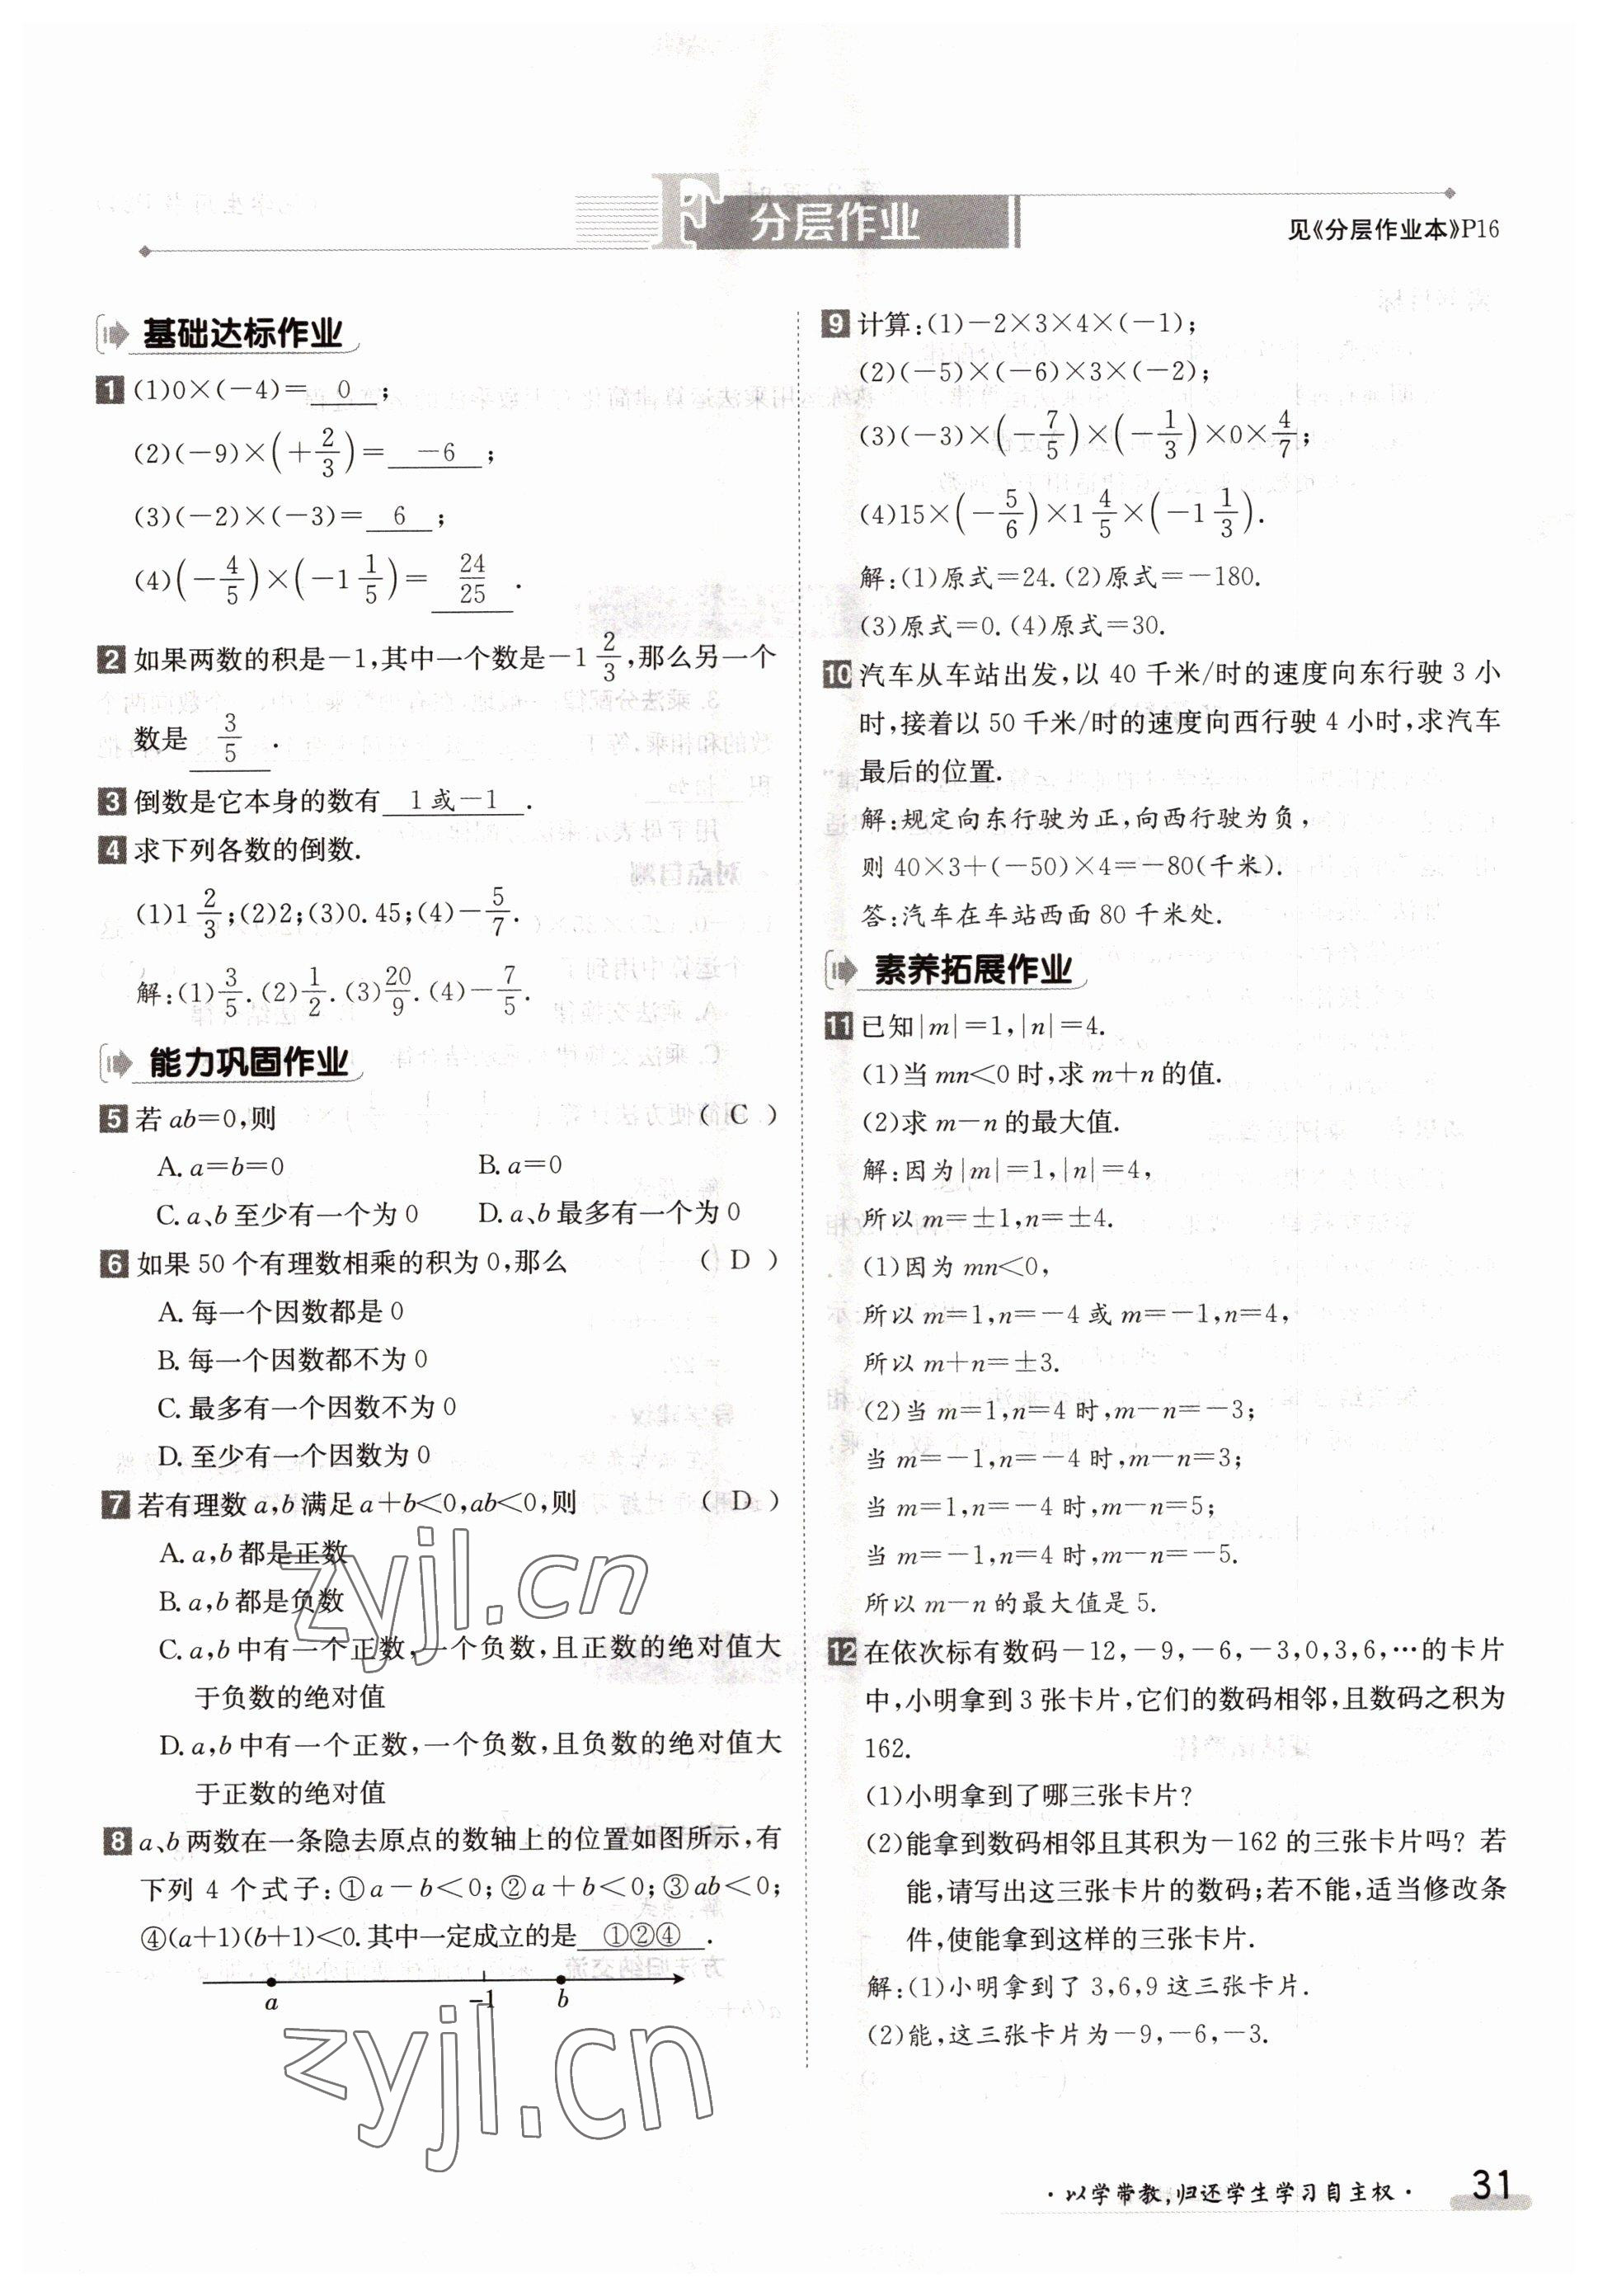 F 分层作业
见《分层作业本》P16
基础达标作业
1 (1)0×(-4)= 0 ;
(2)(-9)×(+2/3)= -6 ;
(3)(-2)×(-3)= 6 ;
(4)(-4/5)×(-1 1/5)= 24/25 .
2 如果两数的积是-1,其中一个数是-1 2/3,那么另一个
数是 3/5 .
3 倒数是它本身的数有 1或-1 .
4 求下列各数的倒数.
(1)1 2/3;(2)2;(3)0.45;(4)-5/7.
解:(1)3/5.(2)1/2.(3)20/9.(4)-7/5.
能力巩固作业
5 若ab=0,则 ( C )
A. a=b=0 B. a=0
C. a、b至少有一个为0 D. a、b最多有一个为0
6 如果50个有理数相乘的积为0,那么 ( D )
A. 每一个因数都是0
B. 每一个因数都不为0
C. 最多有一个因数不为0
D. 至少有一个因数为0
7 若有理数a,b满足a+b<0,ab<0,则 ( D )
A. a,b都是正数
B. a,b都是负数
C. a,b中有一个正数,一个负数,且正数的绝对值大
于负数的绝对值
D. a,b中有一个正数,一个负数,且负数的绝对值大
于正数的绝对值
8 a、b两数在一条隐去原点的数轴上的位置如图所示,有
下列4个式子:①a-b<0;②a+b<0;③ab<0;
④(a+1)(b+1)<0.其中一定成立的是 ①②④ .
a -1 b
9 计算:(1)-2×3×4×(-1);
(2)(-5)×(-6)×3×(-2);
(3)(-3)×(-7/5)×(-1/3)×0×4/7;
(4)15×(-5/6)×1 4/5×(-1 1/3).
解:(1)原式=24.(2)原式=-180.
(3)原式=0.(4)原式=30.
10 汽车从车站出发,以40千米/时的速度向东行驶3小
时,接着以50千米/时的速度向西行驶4小时,求汽车
最后的位置.
解:规定向东行驶为正,向西行驶为负,
则40×3+(-50)×4=-80(千米).
答:汽车在车站西面80千米处.
素养拓展作业
11 已知|m|=1,|n|=4.
(1)当mn<0时,求m+n的值.
(2)求m-n的最大值.
解:因为|m|=1,|n|=4,
所以m=±1,n=±4.
(1)因为mn<0,
所以m=1,n=-4或m=-1,n=4,
所以m+n=±3.
(2)当m=1,n=4时,m-n=-3;
当m=-1,n=-4时,m-n=3;
当m=1,n=-4时,m-n=5;
当m=-1,n=4时,m-n=-5.
所以m-n的最大值是5.
12 在依次标有数码-12,-9,-6,-3,0,3,6,…的卡片
中,小明拿到3张卡片,它们的数码相邻,且数码之积为
162.
(1)小明拿到了哪三张卡片?
(2)能拿到数码相邻且其积为-162的三张卡片吗?若
能,请写出这三张卡片的数码;若不能,适当修改条
件,使能拿到这样的三张卡片.
解:(1)小明拿到了3,6,9这三张卡片.
(2)能,这三张卡片为-9,-6,-3.
zyjl.cn
zyjl.cn
·以学带教,归还学生学习自主权·
31